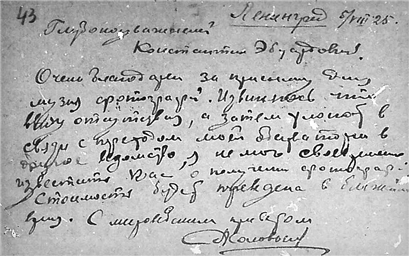 43 Ленинград 5/VIII 25.
Глубокоуважаемый
Константин Эдуардович!
Очень благодарен за присылку для
музея фотографий. Извиняюсь, что
отсутствия, а затем хлопот в
связи с переходом моей в
другое ведомство, я не мог своевременно
известить Вас о получении фотографий
Стоимость будет переведена в ближ.
дни. С приветом